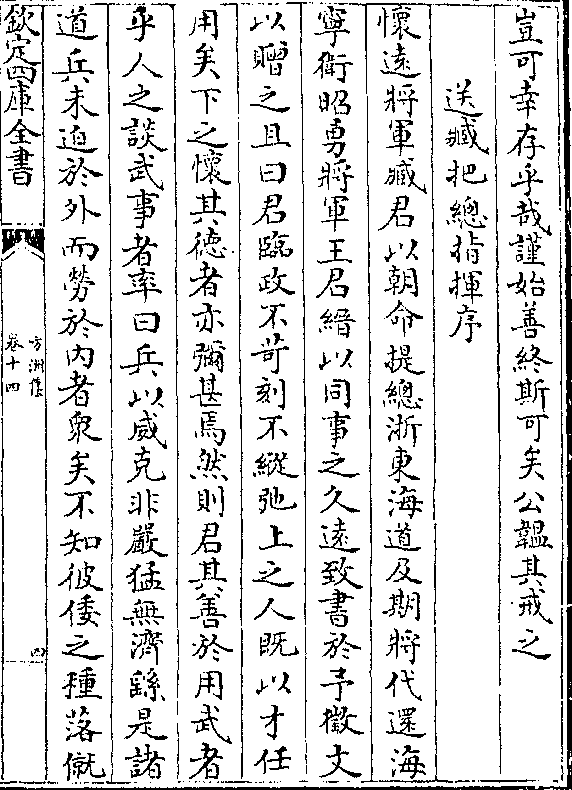 豈可幸存乎哉謹始善終斯可矣公韞其戒之
送臧把總指揮序
懷遠將軍臧君以朝命提總浙東海道及期將代還海
寧衛昭勇將軍王君縉以同事之久遠致書於予徵文
以贈之且曰君臨政不苛刻不縱弛上之人既以才任
用矣下之懷其德者亦彌甚焉然則君其善於用武者
乎人之談武事者率曰兵以威克非嚴猛無濟繇是諸
道兵未迫於外而勞於內者衆矣不知彼倭之種落僦
欽定四庫全書
方洲集
卷十四
四